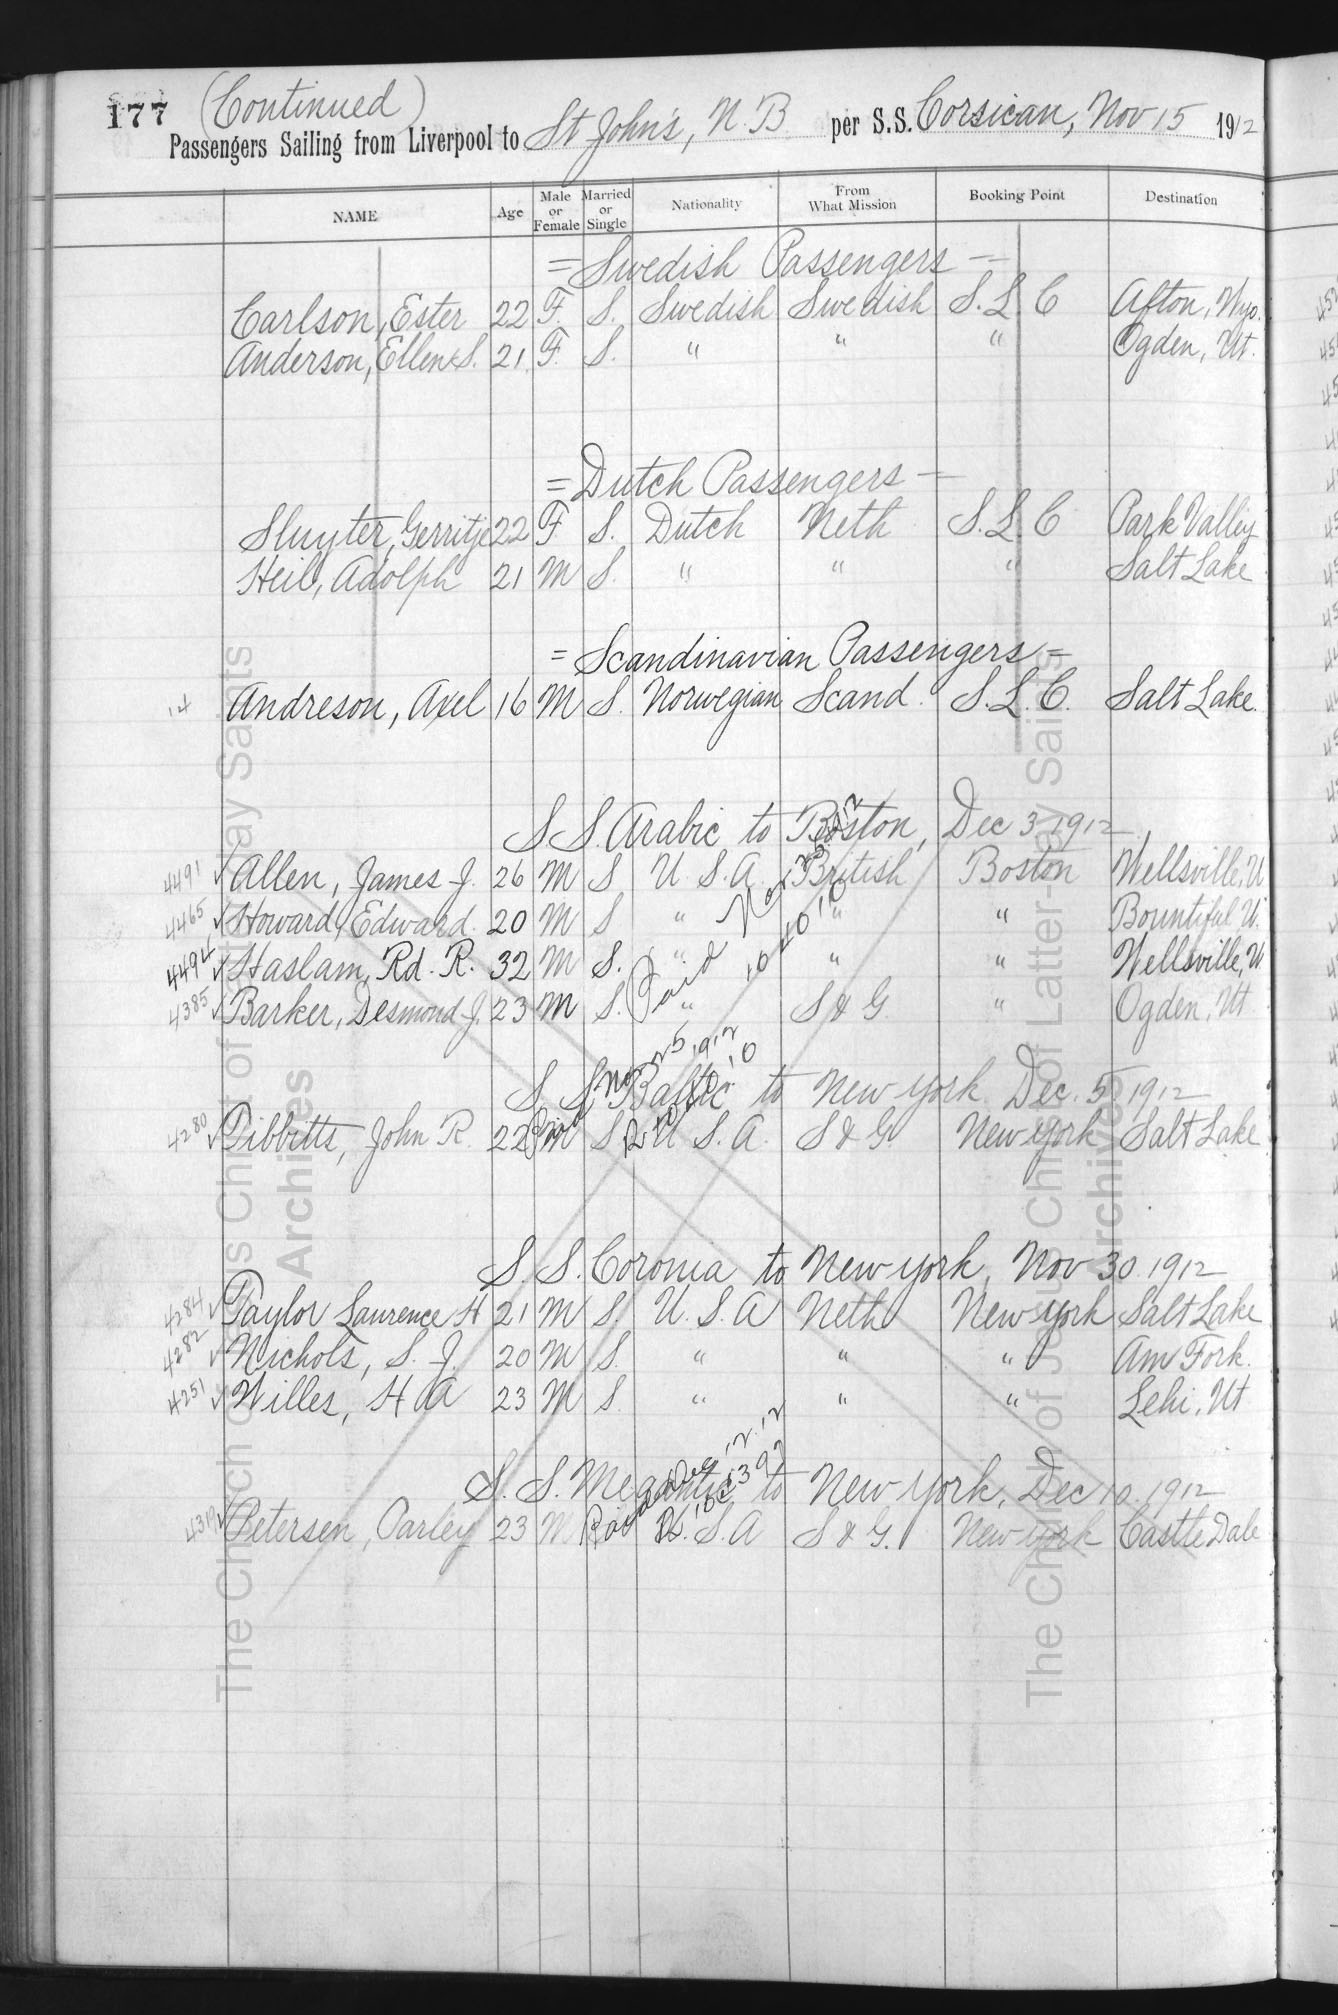 177 (Continued)
Passengers Sailing from Liverpool to St John's, N. B per S.S. Corsican, Nov 15 1912
NAME Age Male or Female Married or Single Nationality From What Mission Booking Point Destination
= Swedish Passengers —
Carlson, Ester 22 F. S. Swedish Swedish S. L. C Afton, Wyo.
Anderson, Ellen S. 21 F. S. " " " Ogden, Ut.
= Dutch Passengers —
Sluyter, Gerritje 22 F S. Dutch Neth S. L. C Park Valley
Heil, Adolph 21 M S. " " " Salt Lake
= Scandinavian Passengers =
14 Andreson, Axel 16 M S. Norwegian Scand. S. L. C. Salt Lake.
S S. Arabic to Boston, Dec 3 1912
4491 ✓ Allen, James J. 26 M S U. S. A. British Boston Wellsville, U
4465 ✓ Howard, Edward. 20 M S " " " Bountiful U.
4494 ✓ Haslam, Rd. R. 32 M S. " " " Wellsville, U
4385 ✓ Barker, Desmond J. 23 M S. " S & G. " Ogden, Ut
Paid Nov 25 1912
10 40 10
S. S. Baltic to New York Dec. 5 1912
4280 ✓ Tibbitts, John R. 22 M S U. S. A. S & G. New York Salt Lake
Paid Nov 25 1912
S. S. Coronia to New York, Nov 30. 1912
4284 ✓ Taylor Laurence H 21 M S. U. S. A Neth New York Salt Lake
4282 ✓ Nichols, S. J. 20 M S. " " " Am Fork.
4251 ✓ Willes, H A 23 M S. " " " Lehi, Ut
S. S. Megantic to New York, Dec 10. 1912
4319 ✓ Petersen, Parley 23 M U. S. A S & G. New York Castle Dale
Paid Dec 12. 12
The Church of Jesus Christ of Latter-day Saints
Archives
The Church of Jesus Christ of Latter-day Saints
Archives